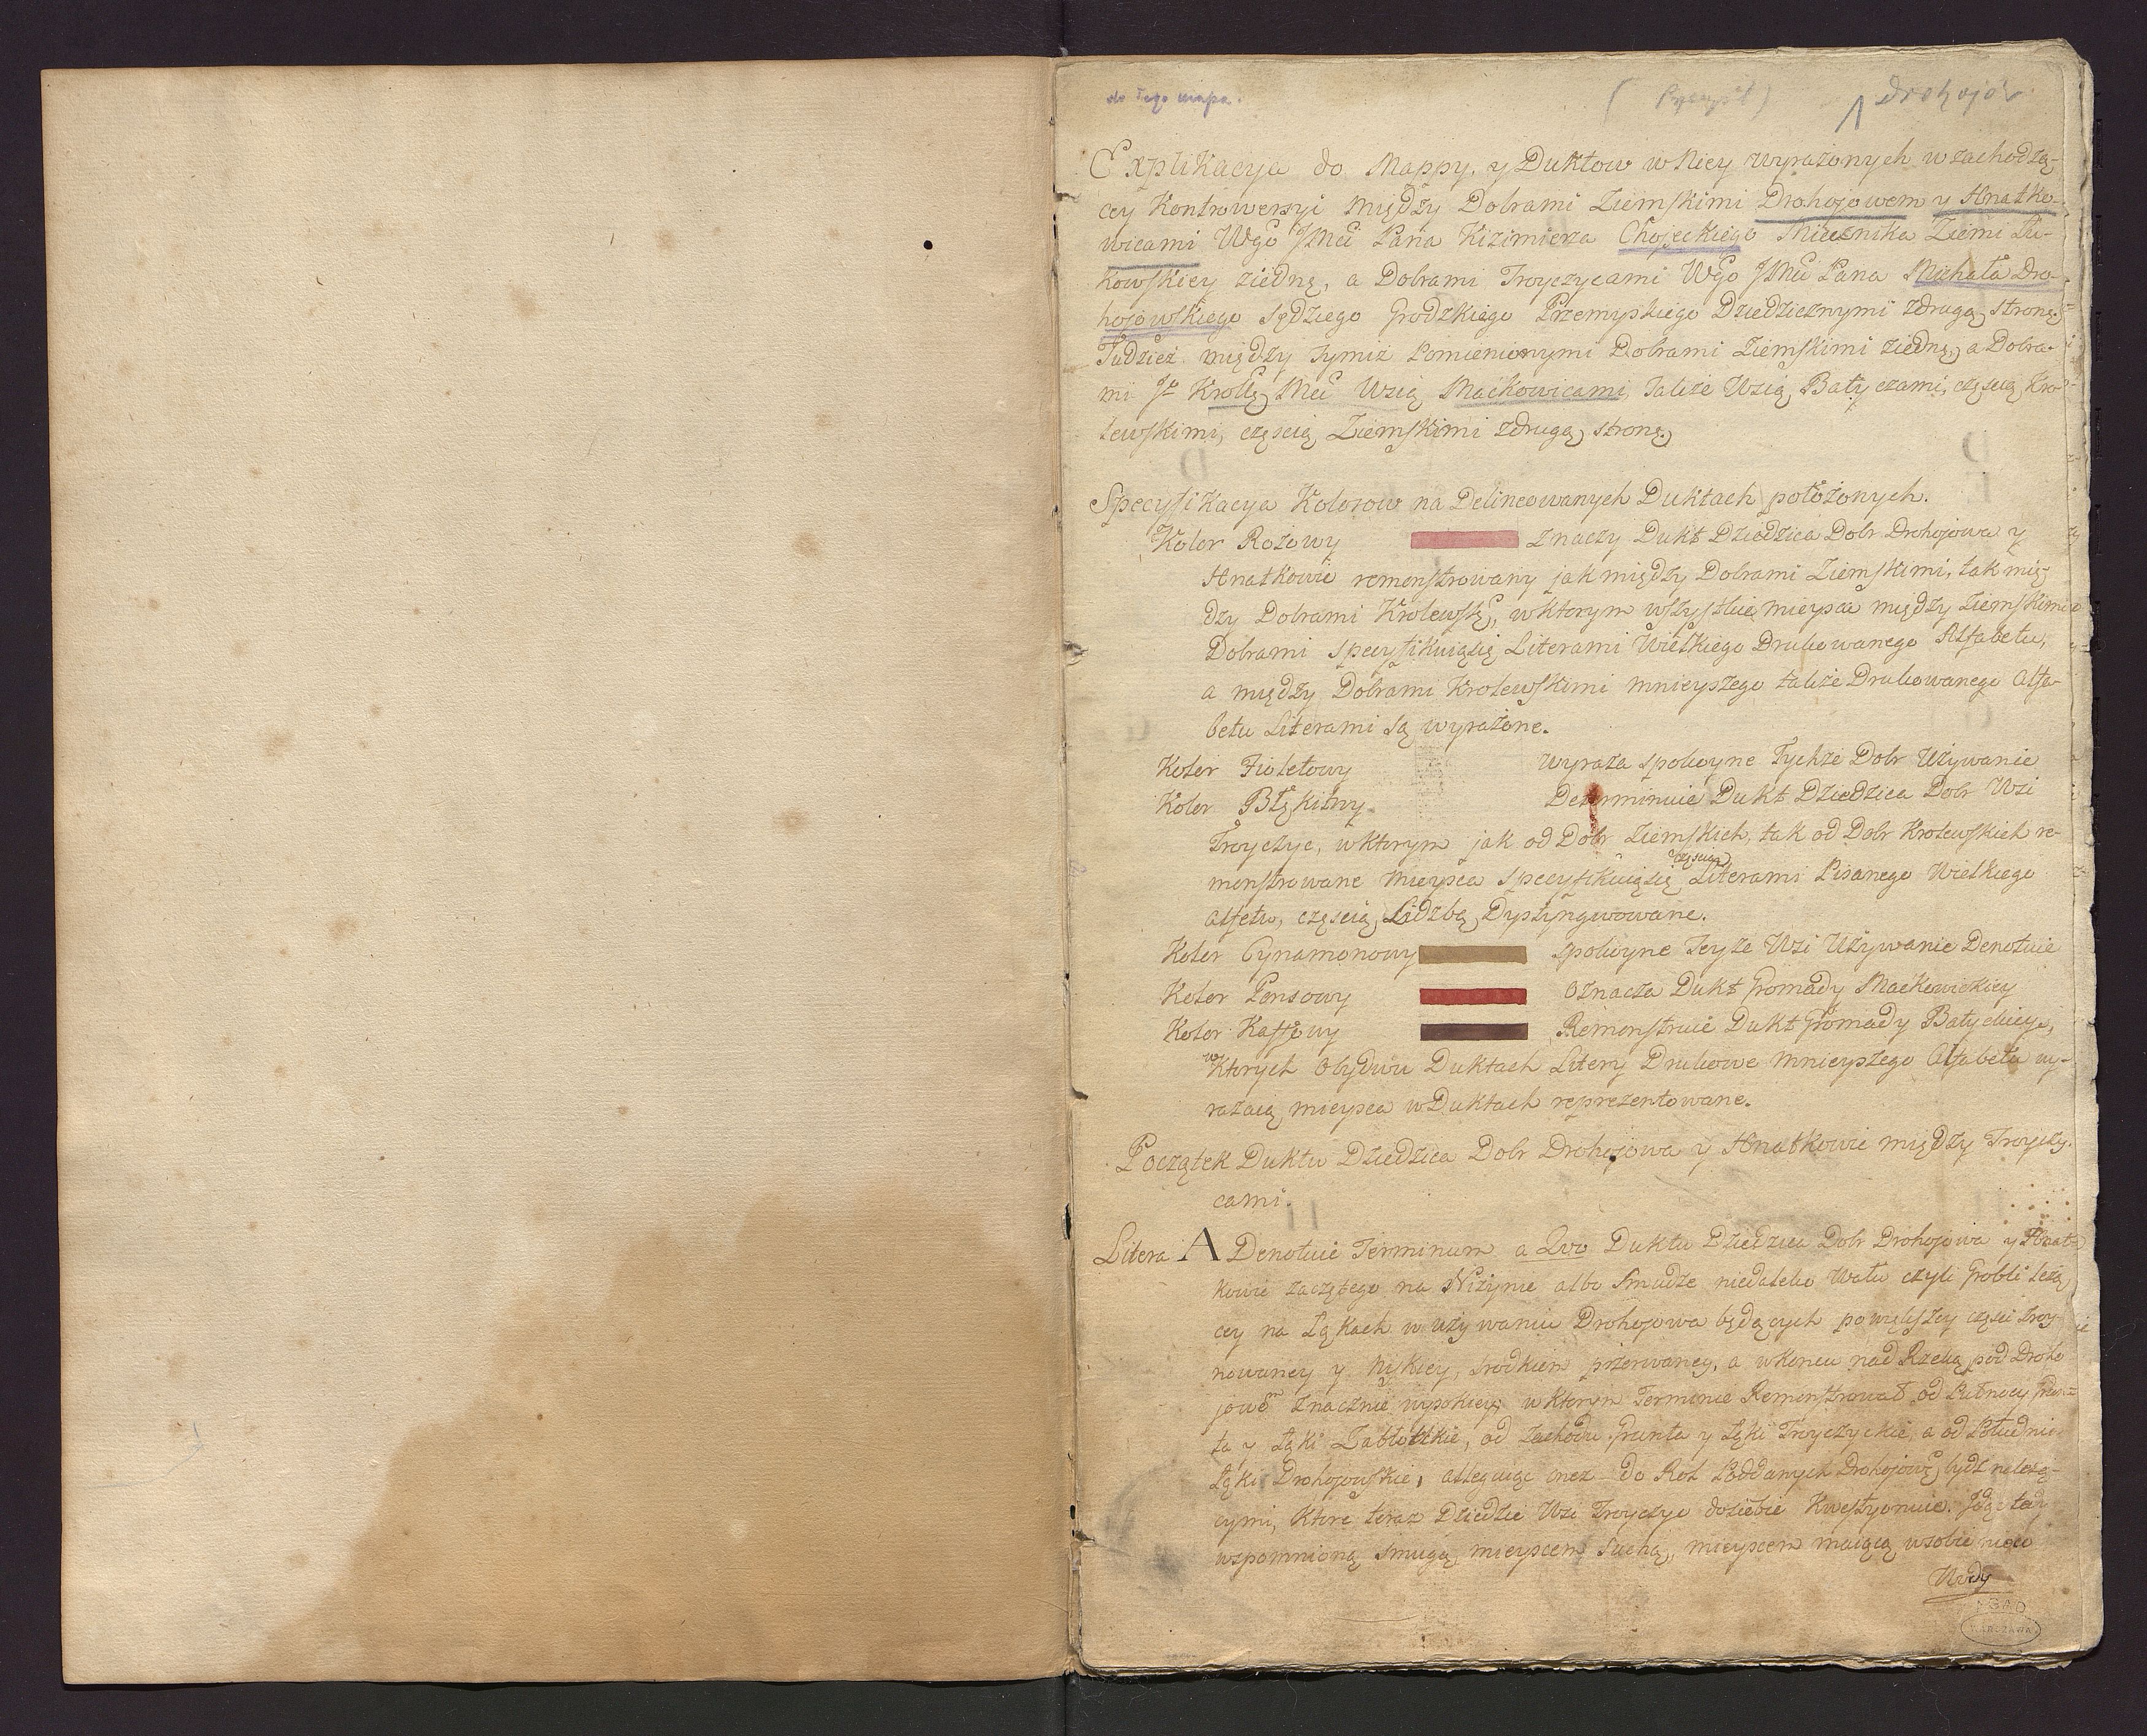 do tego mapa.
drohojów
Explikacya do Mappy, y Duktow w Niey wyrażonych w zachodzą-
cey Kontrowersyi między Dobrami Ziemskimi Drohojowem y Hnatko-
wicami Wgo JMci Pana Kizimierza Chojeckiego Miecznika Ziemi Łu-
kowskiey ziedną, a Dobrami Troyczycami Wgo JMci Pana Michała Dro-
hojowskiego Sędziego Grodzkiego Przemyskiego Dziedzicznymi zdrugą stroną.
Tudzież między tymiż Pomienionymi Dobrami Ziemskimi ziedną, a Dobra-
mi Kmci Wsią Maćkowicami, także Wsią Batyczami, częscią Kro-
lewskimi, częscią Ziemskimi zdrugą stroną.
Specyfikacya Kolorow na Delineowanych Duktach położonych.
Kolor Rożowy znaczy Dukt Dziedzica Dobr Drohojowa y
Hnatkowic remonstrowany jak między Dobrami Ziemskimi, tak mię-
dzy Dobrami Krolewskę, w ktorym wszystkie mieysca między Ziemskimi
Dobrami specyfikuią się Literami Wielkiego Drukowanego Alfabetu,
a między Dobrami Krolewskimi mnieyszego także Drukowanego Alfa-
betu Literami są wyrażone.
Kolor Fioletowy wyraża spokoyne Tychże Dobr Używanie
Kolor Błękitny Determinuie Dukt Dziedzica Dobr Wsi
Troyczyc, w ktorym jak od Dobr Ziemskich, tak od Dobr Krolewskich re-
monstrowane mieysca specyfikuią się częscią Literami Pisanego Wielkiego
Alfetu, częscią Lidzbą Dystyngwowane.
Kolor Cynamonowy spokoyne teyże Wsi Używanie Denotuie
Kolor Ponsowy Oznacza Dukt Gromady Maćkowickiey
Kolor Kaffowy Remonstruie Dukt Gromady Batyckiey,
w Ktorych Obydwu Duktach Litery Drukowe mnieyszego Alfabetu wy-
rażaią mieysca w Duktach reprezentowane.
Początek Duktu Dziedzica Dobr Drohojowa y Hnatkowic między Troyczy-
cami.
Litera A Denotuie Terminum a Quo Duktu Dziedzica Dobr Drohojowa y Hnat-
kowic zaczętego na Niżynie albo Smudze niedaleko Wału czyli Grobli leżą
cey na Łąkach w używaniu Drohojowa będących po większey częsci
nowaney y niskiey, srodkiem przerwaney, a w końcu nad Rzeką pod Droho
jowem znacznie wysokiey; w ktorym Terminie Remonstrował od Pułnocy Grun-
ta y Łąki Zabłotckie, od Zachodu Grunta y Łąki Troyczyckie, a od Południa
Łąki Drohojowskie, alleguiąc onez do Rol Poddanych Drohojowa bydz należą-
cymi, Ktore teraz Dziedzic Wsi Troyczyc do siebie Kwestyonuie. Idąc tą
wspomnioną smugą mieyscem suchą, mieyscem maiącą w sobie nieco
Wody
AGAD
WARSZAWA